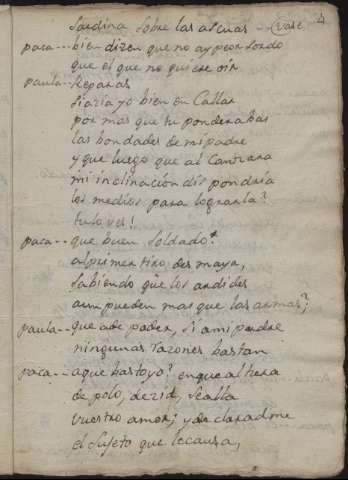 4
sardina sobre las ascuas - vase
paca - - - bien dizen que no ay peor sordo
que el que no quiere oir
paula - Reparas
si aria yo bien en Callar
por mas que tu ponderabas
las bondades de mi padre
y que luego que al
mi inclinación dispondria
los medios para lograrla?
tu lo ves!
paca - - que buen soldado!
al primer tiro desmaya,
sabiendo que los ardides
aun pueden mas que las armas?
paula - - que a de poder, si a mi padre
ningunas razones bastan
paca - - aqui estoyo? en que altura
de polo, dezid, se alla
vuestro amor; y declaradme
el sujeto que le causa,